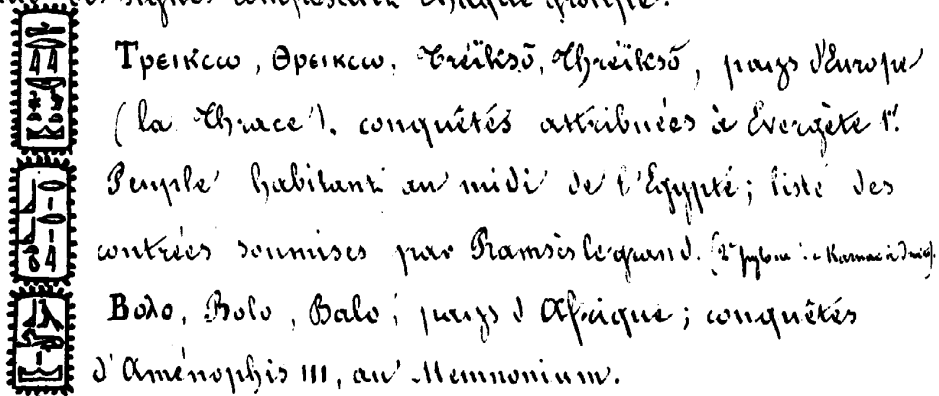 signes composant chaque groupe.
Τρεικcω, Θρεικcω, Tréïksô, Thréïksô, pays d'Europe
(la Thrace), conquêtes attribuées à Évergète 1er.
Peuple habitant au midi de l'Égypte; liste des
contrées soumises par Rhamsès le grand. (2e pylône de Karnac à droite).
Βολο, Bolo, Balo, pays d'Afrique; conquêtes
d'Aménophis III, au Memnonium.